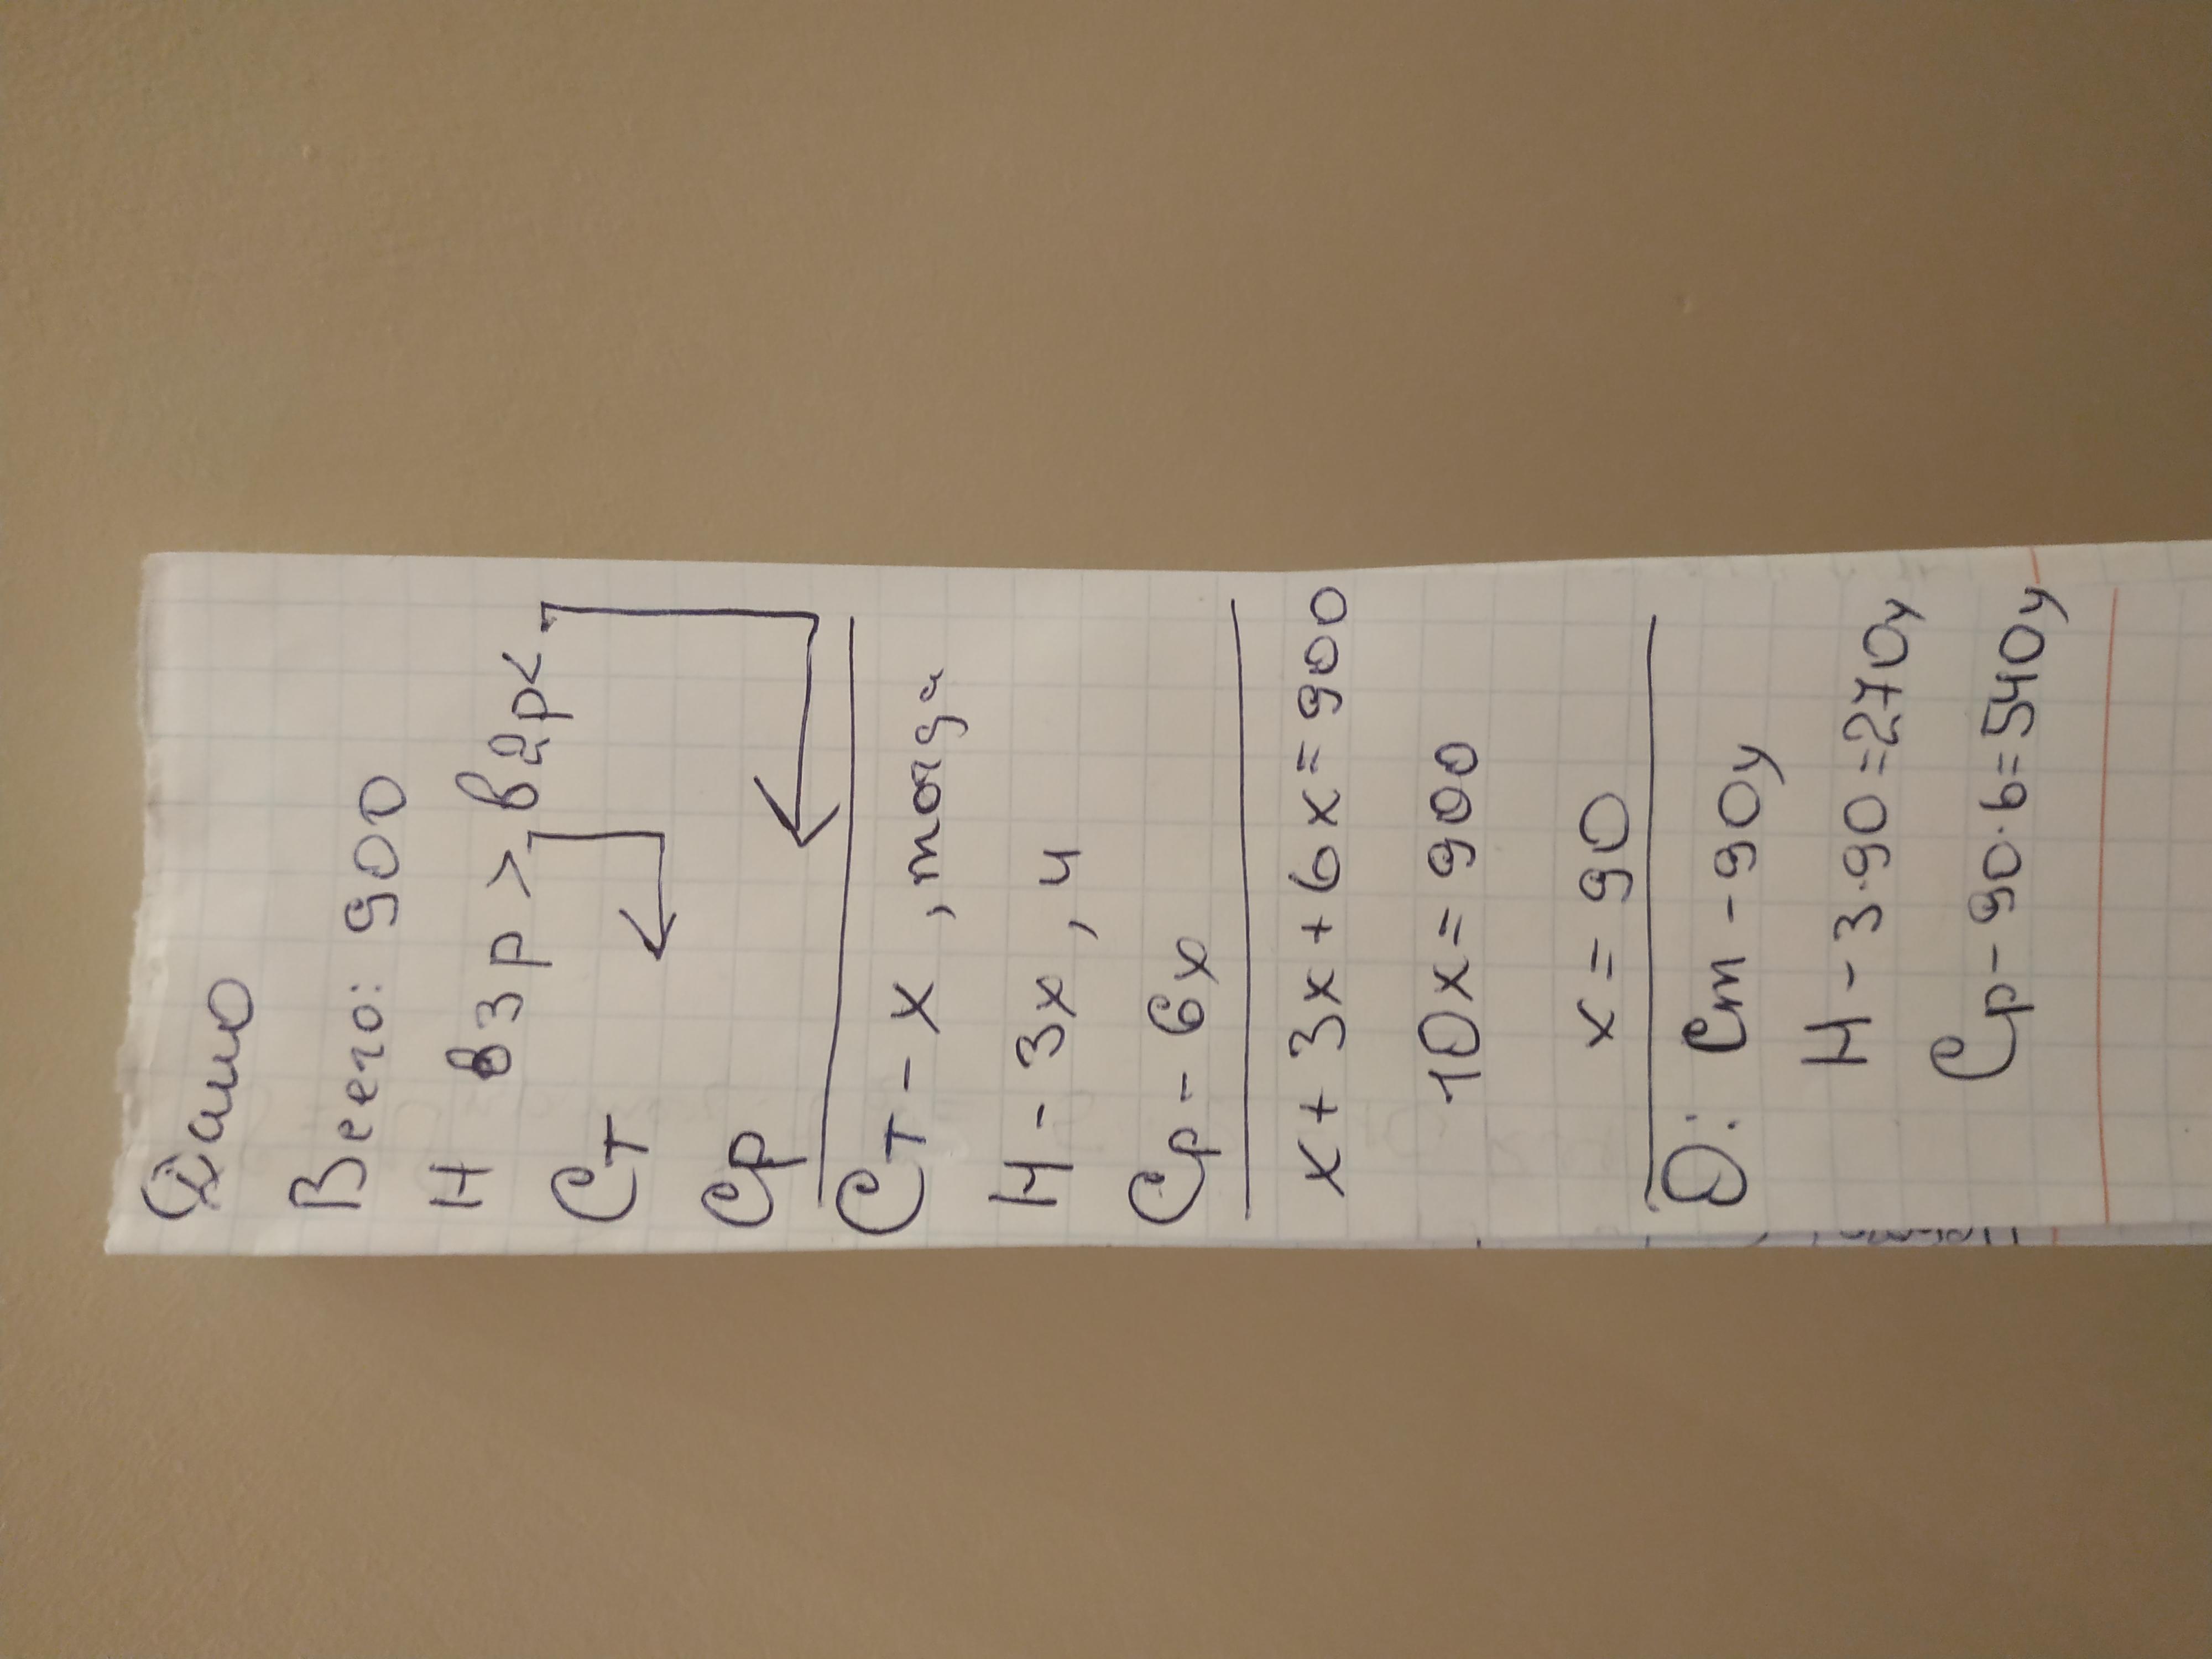 Дано
Всего: 900
Н в 3р > в 2р <
Ст
Ср
Ст - х, тогда
Н - 3х, и
Ср - 6х
х + 3х + 6х = 900
10х = 900
х = 90
О: Ст - 90у
Н - 3·90 = 270у
Ср - 90·6 = 540у